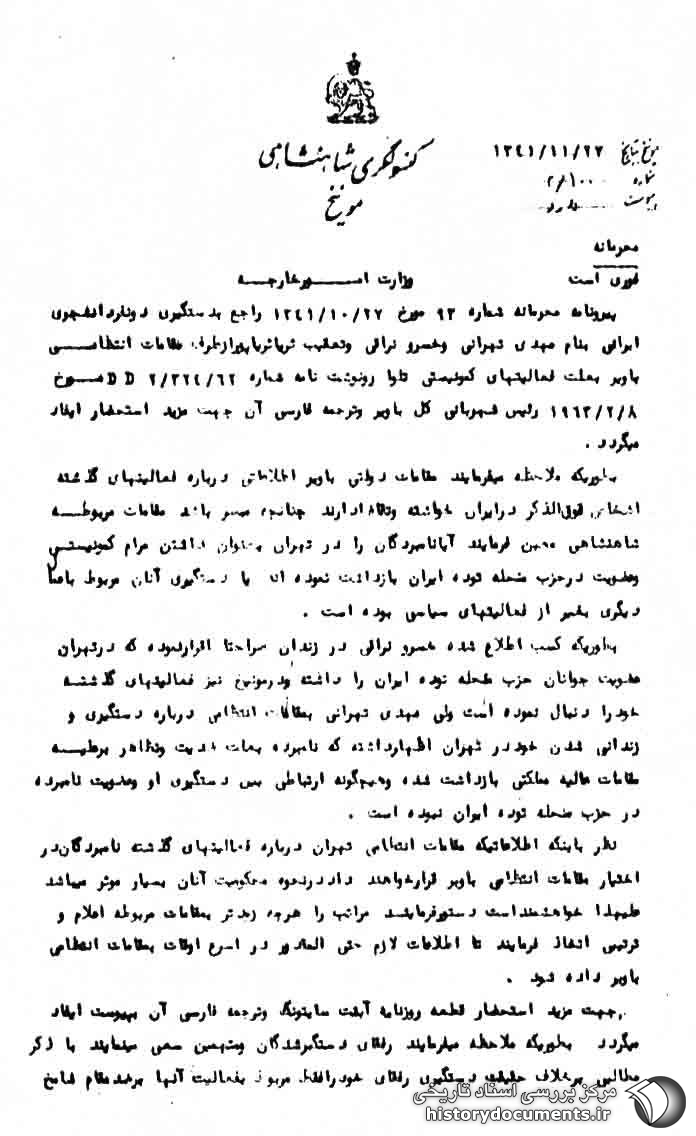 کنسولگری شاهنشاهی
مونیخ
بتاریخ ۱۳۴۱/۱۱/۲۷
شماره
پیوست
محرمانه
فوری است
وزارت امور خارجه
پیرو نامه محرمانه شماره ۹۳ مورخ ۱۳۴۱/۱۰/۲۷ راجع بدستگیری دونفر دانشجوی
ایرانی بنام مهدی تهرانی وخسرو نراقی وتعقیب ثریا ثریاپور ازطرف مقامات انتظامی
باویر بعلت فعالیتهای کمونیستی تلوا رونوشت نامه شماره DD ۲/۳۲۴/۶۲ مورخ
۱۹۶۳/۲/۸ رئیس شهربانی کل باویر وترجمه فارسی آن جهت مزید استحضار ایفاد
میگردد .
بطوریکه ملاحظه میفرمایند مقامات دولتی باویر اطلاعاتی درباره فعالیتهای گذشته
اشخاص فوق‌الذکر درایران خواسته وتقاضا دارند چنانچه میسر باشد مقامات مربوطه
شاهنشاهی معین فرمایند آیا نامبردگان را در تهران بعنوان داشتن مرام کمونیستی
وعضویت درحزب منحله توده ایران بازداشت نموده اند یا دستگیری آنان مربوط باعمال
دیگری بغیر از فعالیتهای سیاسی بوده است .
بطوریکه کسب اطلاع شده خسرو نراقی در زندان صراحتا اقرارنموده که درتهران
عضویت جوانان حزب منحله توده ایران را داشته ودرمونیخ نیز فعالیتهای گذشته
خودرا دنبال نموده است ولی مهدی تهرانی بمقامات انتظامی درباره دستگیری و
زندانی شدن خوددر تهران اظهارداشته که نامبرده بعلت ضدیت وتظاهر برعلیه
مقامات عالیه مملکتی بازداشت شده وهیچگونه ارتباطی بین دستگیری او وعضویت نامبرده
در حزب منحله توده ایران نبوده است .
نظر باینکه اطلاعاتیکه مقامات انتظامی تهران درباره فعالیتهای گذشته نامبردگان در
اختیار مقامات انتظامی باویر قرارخواهند داد درنحوه محکومیت آنان بسیار موثر میباشد
علیهذا خواهشمنداست دستورفرمایند مراتب را هرچه زودتر بمقامات مربوطه اعلام و
ترتیبی اتخاذ فرمایند تا اطلاعات لازم حتی المقدور در اسرع اوقات بمقامات انتظامی
باویر داده شود .
جهت مزید استحضار قطعه روزنامه آبنت سایتونگ وترجمه فارسی آن بپیوست ایفاد
میگردد بطوریکه ملاحظه میفرمایند رفقای دستگیرشدگان ومتهمین سعی مینمایند با ذکر
مطالبی برخلاف حقیقت دستگیری رفقای خودرافقط مربوط بفعالیت آنها برضدمقام شامخ
مرکز بررسی اسناد تاریخی
historydocuments.ir